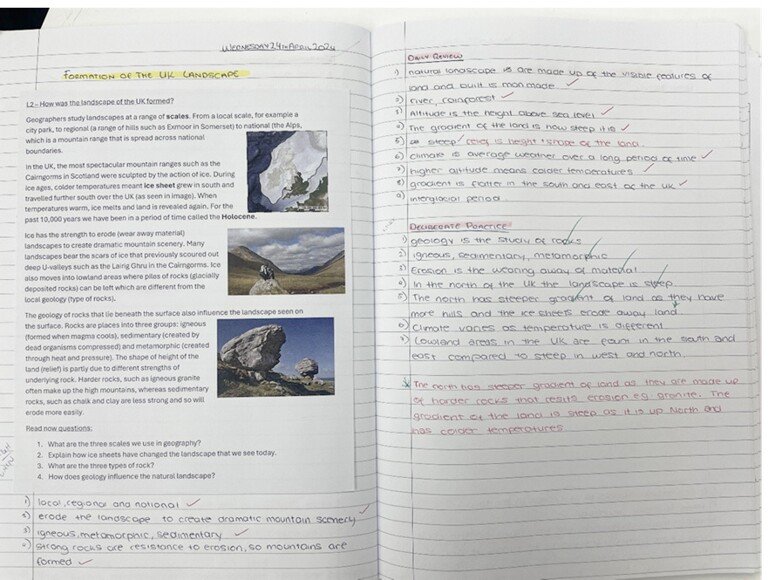 WEDNESDAY 24TH APRIL 2024
FORMATION OF THE UK LANDSCAPE
L2 – How was the landscape of the UK formed?
Geographers study landscapes at a range of scales. From a local scale, for example a
city park, to regional (a range of hills such as Exmoor in Somerset) to national (the Alps,
which is a mountain range that is spread across national
boundaries.
In the UK, the most spectacular mountain ranges such as the
Cairngorms in Scotland were sculpted by the action of ice. During
ice ages, colder temperatures meant Ice sheet grew in south and
travelled further south over the UK (as seen in image). When
temperatures warm, ice melts and land is revealed again. For the
past 10,000 years we have been in a period of time called the Holocene.
Ice has the strength to erode (wear away material)
landscapes to create dramatic scenery. Many
landscapes bear the scars of ice that previously scoured out
deep U-valleys such as the Lairig Ghru in the Cairngorms. Ice
also moves into lowland areas where piles of rocks (glacially
deposited rocks) can be left which are different from the
local geology (type of rocks).
The geology of rocks that lie beneath the surface also influence the landscape seen on
the surface. Rocks are places into three groups: igneous
(formed when magma cools), sedimentary (created by
dead organisms compressed) and metamorphic (created
through heat and pressure). The shape of height of the
land (relief) is partly due to different strengths of
underlying rock. Harder rocks, such as igneous granite
often make up the high mountains, whereas sedimentary
rocks, such as chalk and clay are less strong and so will
erode more easily.
Read now questions:
1. What are the three scales we use in geography?
2. Explain how ice sheets have changed the landscape that we see today.
3. What are the three types of rock?
4. How does geology influence the natural landscape?
1) local, regional and national
2) erode the landscape to create dramatic mountain scenery
3) igneous, metamorphic, sedimentary
4) strong rocks are resistance to erosion, so mountains are
formed
DAILY REVIEW
1) natural landscape is are made up of the visible features of
land and built is man made.
2) river, rainforest
3) Altitude is the height above sea level
4) The gradient of the land is how steep it is
5) steep relief is height + shape of the land.
6) climate is average weather over a long period of time
7) higher altitude means colder temperatures
8) gradient is flatter in the south and east of the UK
9) interglacial period
DELIBERATE PRACTICE
1) geology is the study of rocks
2) igneous, sedimentary, metamorphic
3) Erosion is the wearing away of material
4) In the north of the UK the landscape is steep
5) The north has steeper gradient of land as they have
more hills and the ice sheets erode away land.
6) Climate varies as temperature is different
7) Lowland areas in the UK are found in the south and
east compared to steep in west and north
The north has steeper gradient of land as they are made up
of harder rocks that resits erosion eg. granite. The
gradient of the land is steep as it is up North and
has colder temperatures